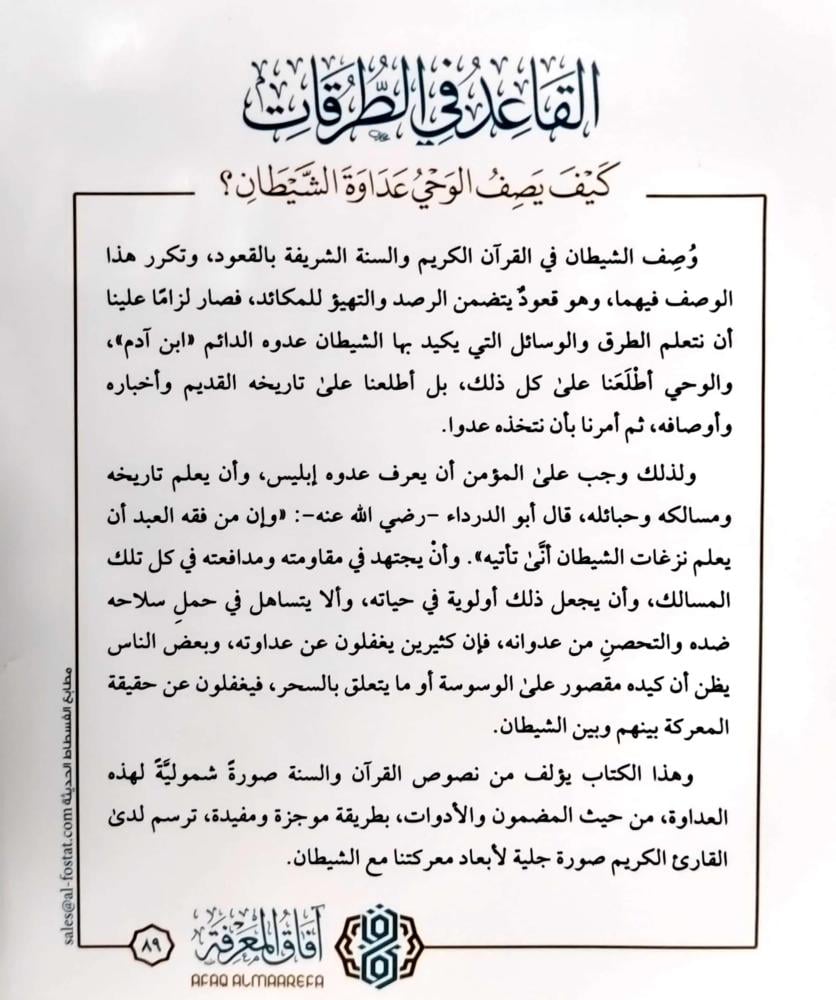 القَاعِدُ فِي الطُّرُقَاتِ
كَيْفَ يَصِفُ الوَحْيُ عَدَاوَةَ الشَّيْطَانِ؟
وُصِف الشيطان في القرآن الكريم والسنة الشريفة بالقعود، وتكرر هذا
الوصف فيهما، وهو قعودٌ يتضمن الرصد والتهيؤ للمكائد، فصار لزامًا علينا
أن نتعلم الطرق والوسائل التي يكيد بها الشيطان عدوه الدائم «ابن آدم»،
والوحي أطْلَعَنا علىٰ كل ذلك، بل أطلعنا علىٰ تاريخه القديم وأخباره
وأوصافه، ثم أمرنا بأن نتخذه عدوا.
ولذلك وجب علىٰ المؤمن أن يعرف عدوه إبليس، وأن يعلم تاريخه
ومسالكه وحبائله، قال أبو الدرداء -رضي الله عنه-: «وإن من فقه العبد أن
يعلم نزغات الشيطان أنَّىٰ تأتيه». وأنْ يجتهد في مقاومته ومدافعته في كل تلك
المسالك، وأن يجعل ذلك أولوية في حياته، وألا يتساهل في حملِ سلاحه
ضده والتحصنِ من عدوانه، فإن كثيرين يغفلون عن عداوته، وبعض الناس
يظن أن كيده مقصور علىٰ الوسوسة أو ما يتعلق بالسحر، فيغفلون عن حقيقة
المعركة بينهم وبين الشيطان.
وهذا الكتاب يؤلف من نصوص القرآن والسنة صورةً شموليَّةً لهذه
العداوة، من حيث المضمون والأدوات، بطريقة موجزة ومفيدة، ترسم لدىٰ
القارئ الكريم صورة جلية لأبعاد معركتنا مع الشيطان.
آفَاقُ المَعْرِفَةِ
AFAQ ALMAAREFA
٨٩
مطابع الفسطاط الحديثة sales@al-fostat.com